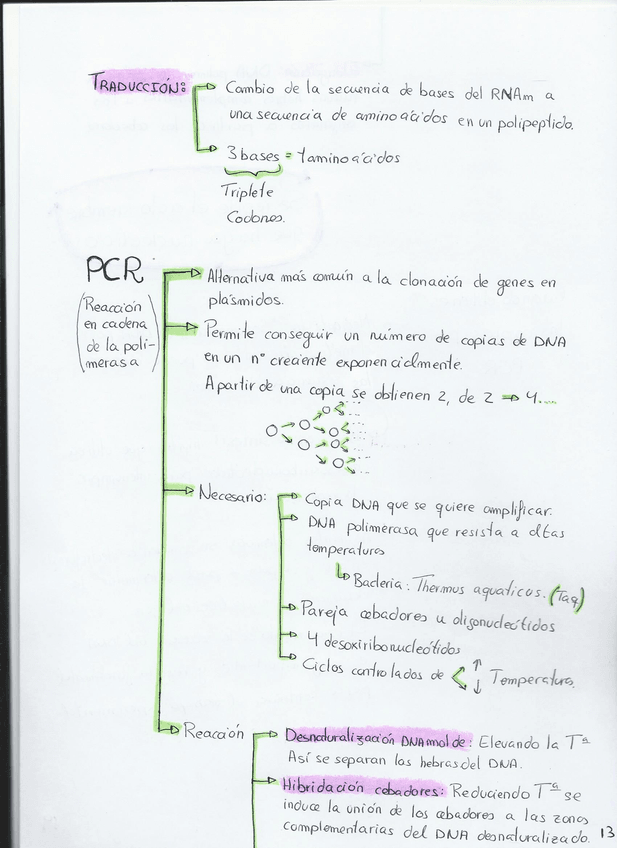 TRADUCCIÓN:
Cambio de la secuencia de bases del RNAm a
una secuencia de aminoácidos en un polipeptido.
3 bases = 1 aminoácidos
Triplete
Codones.
PCR
(Reacción
en cadena
de la poli-
merasa)
Alternativa más común a la clonación de genes en
plásmidos.
Permite conseguir un número de copias de DNA
en un nº creciente exponencialmente.
A partir de una copia se obtienen 2, de 2 ⇒ 4....
Necesario:
Copia DNA que se quiere amplificar.
DNA polimerasa que resista a altas
temperaturas
Bacteria: Thermus aquaticus. (Taq)
Pareja cebadores u oligonucleótidos
4 desoxiribonucleótidos
Ciclos controlados de < ↑ ↓ Temperatura.
Reacción
Desnaturalización DNA molde: Elevando la Tª
Así se separan las hebras del DNA.
Hibridación cebadores: Reduciendo Tª se
induce la unión de los cebadores a las zonas
complementarias del DNA desnaturalizado.
13